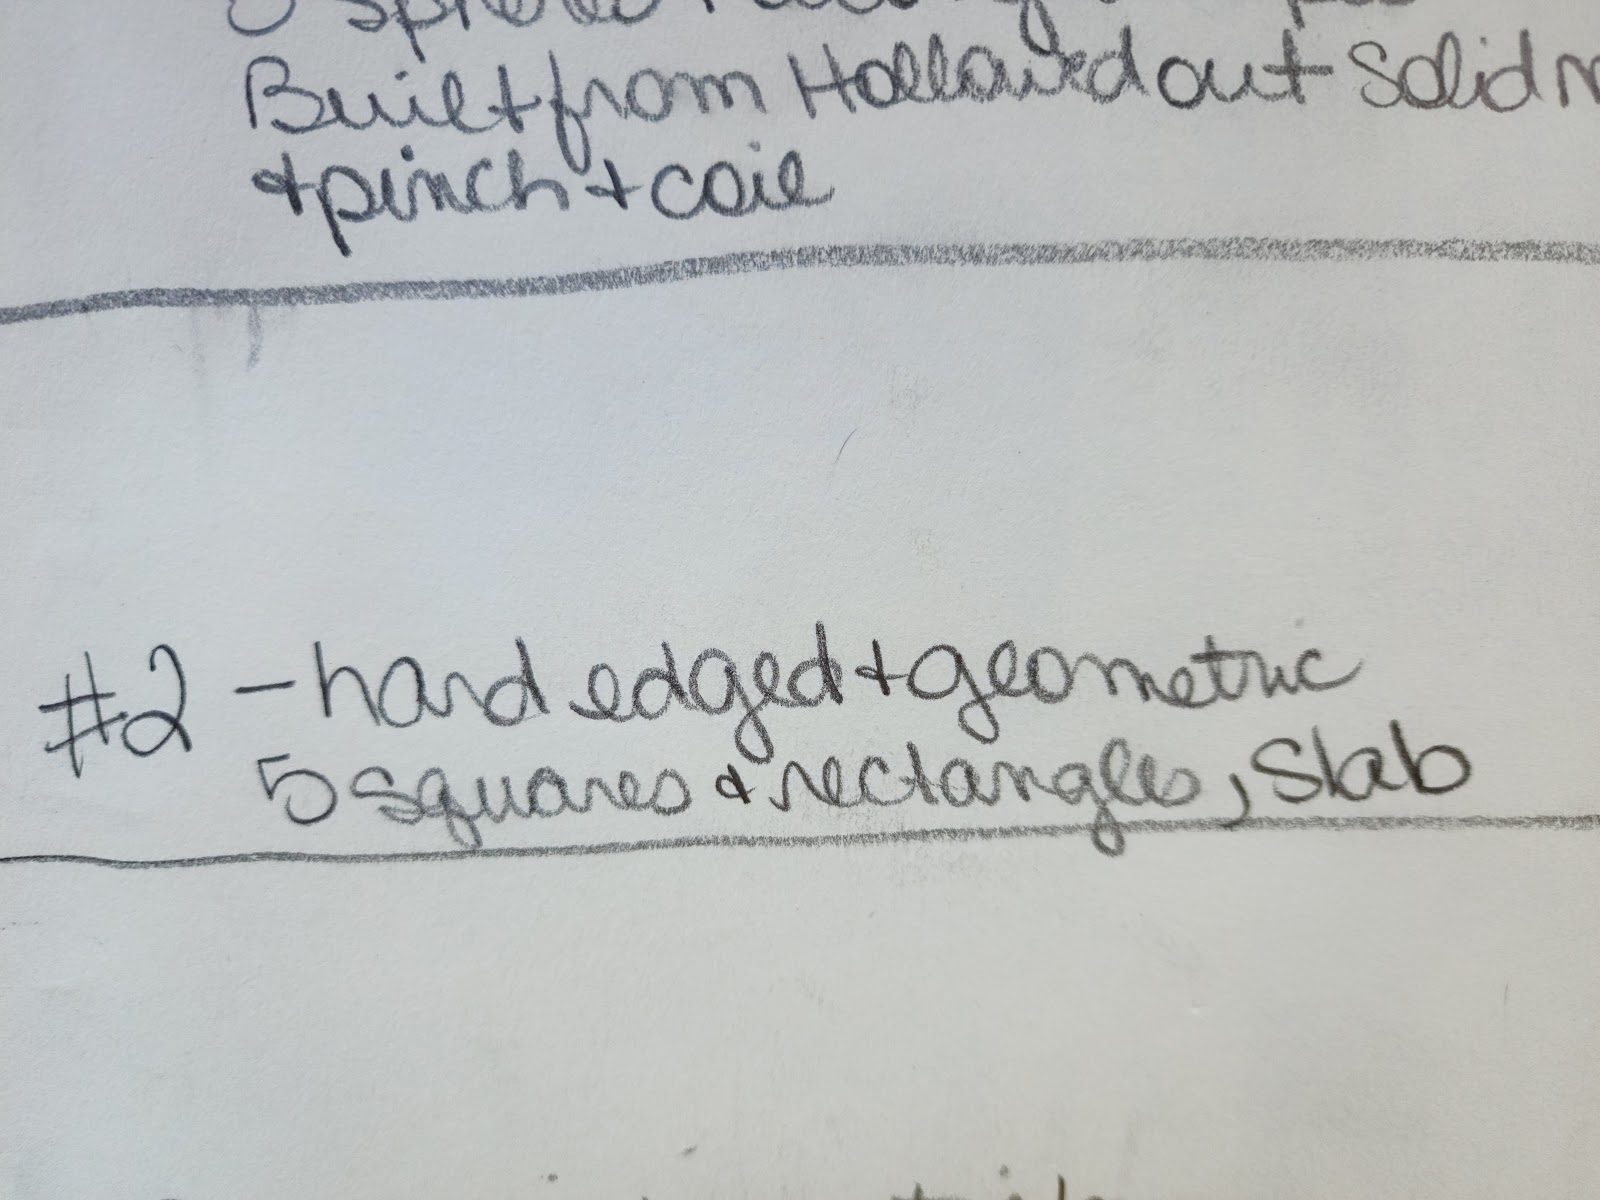 Built from Hollowed out Solid
+ pinch + coil
#2 - hard edged + geometric
5 squares + rectangles, Slab